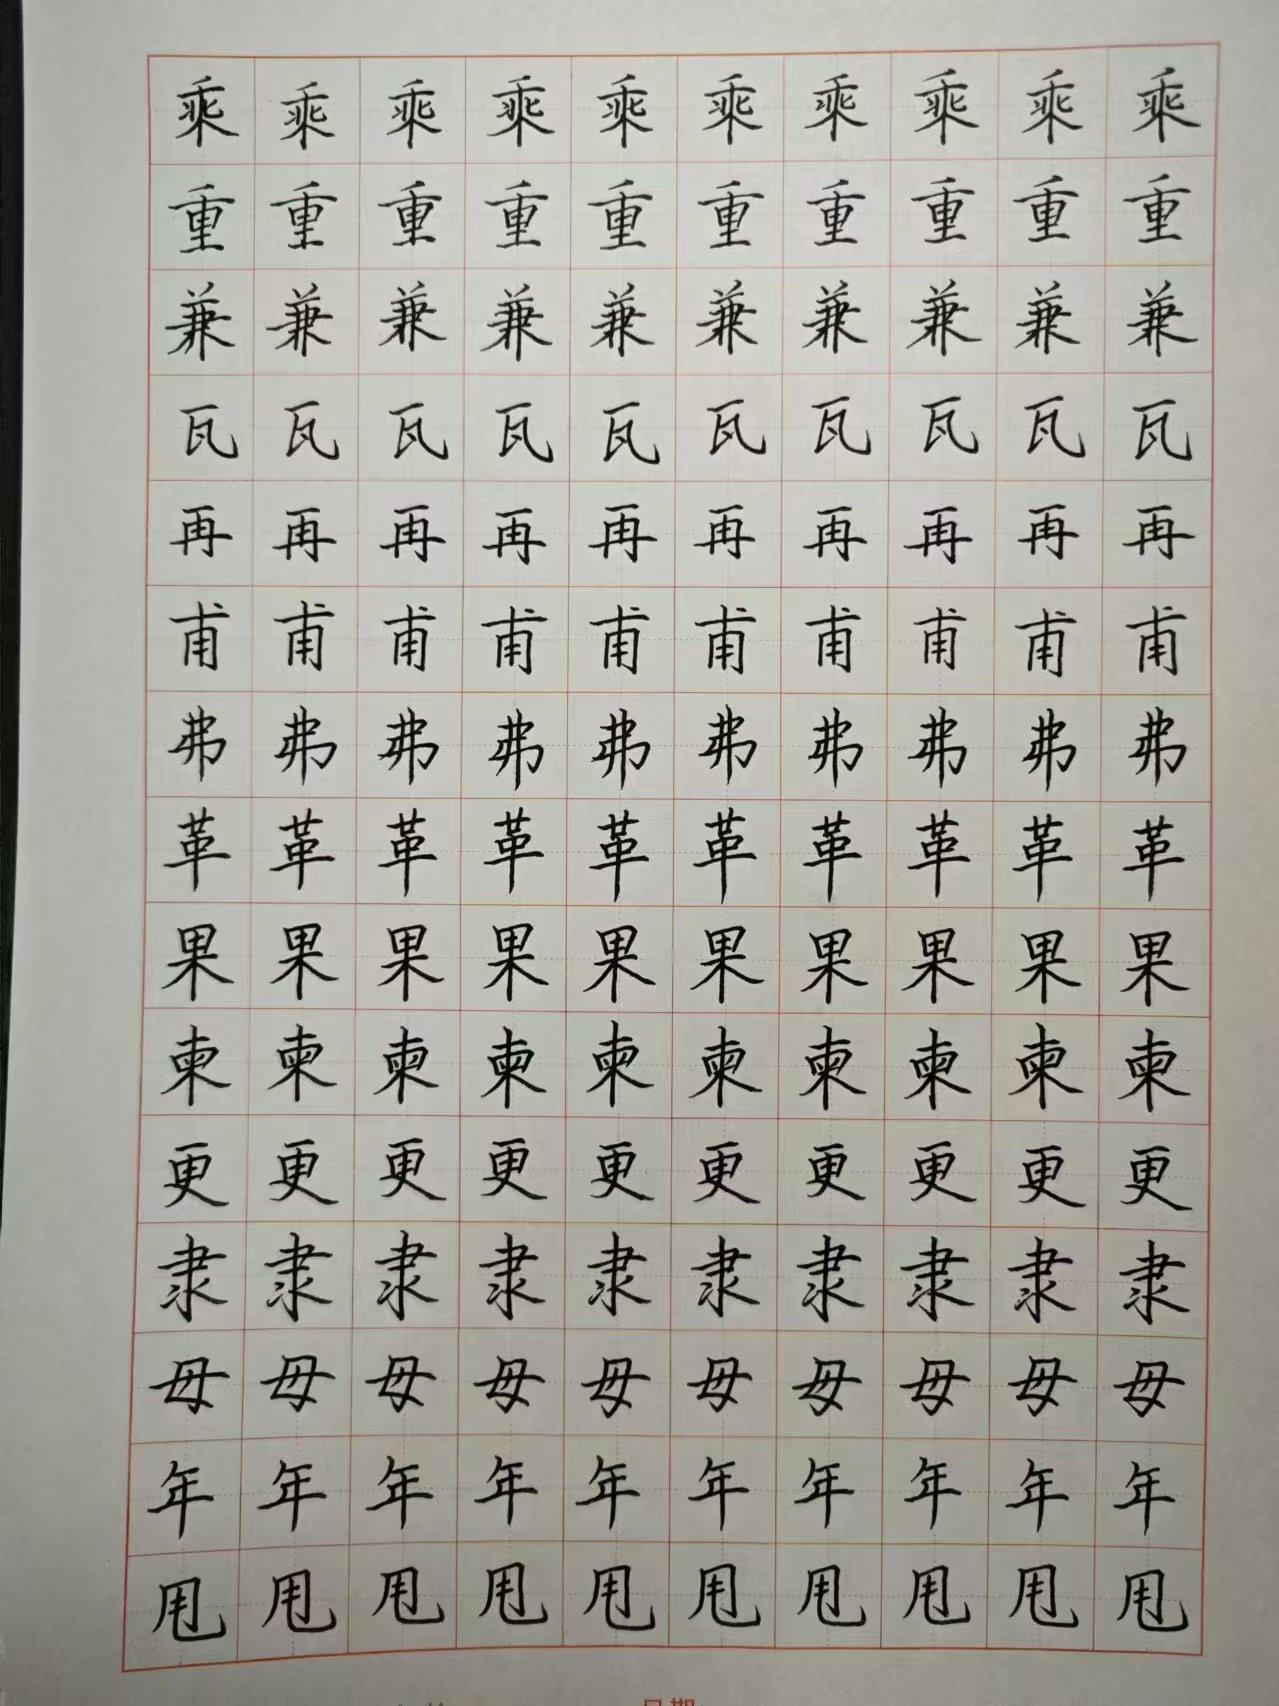 乘乘乘乘乘乘乘乘乘乘
重重重重重重重重重重
兼兼兼兼兼兼兼兼兼兼
瓦瓦瓦瓦瓦瓦瓦瓦瓦瓦
再再再再再再再再再再
甫甫甫甫甫甫甫甫甫甫
弗弗弗弗弗弗弗弗弗弗
革革革革革革革革革革
果果果果果果果果果果
柬柬柬柬柬柬柬柬柬柬
更更更更更更更更更更
隶隶隶隶隶隶隶隶隶隶
母母母母母母母母母母
年年年年年年年年年年
甩甩甩甩甩甩甩甩甩甩